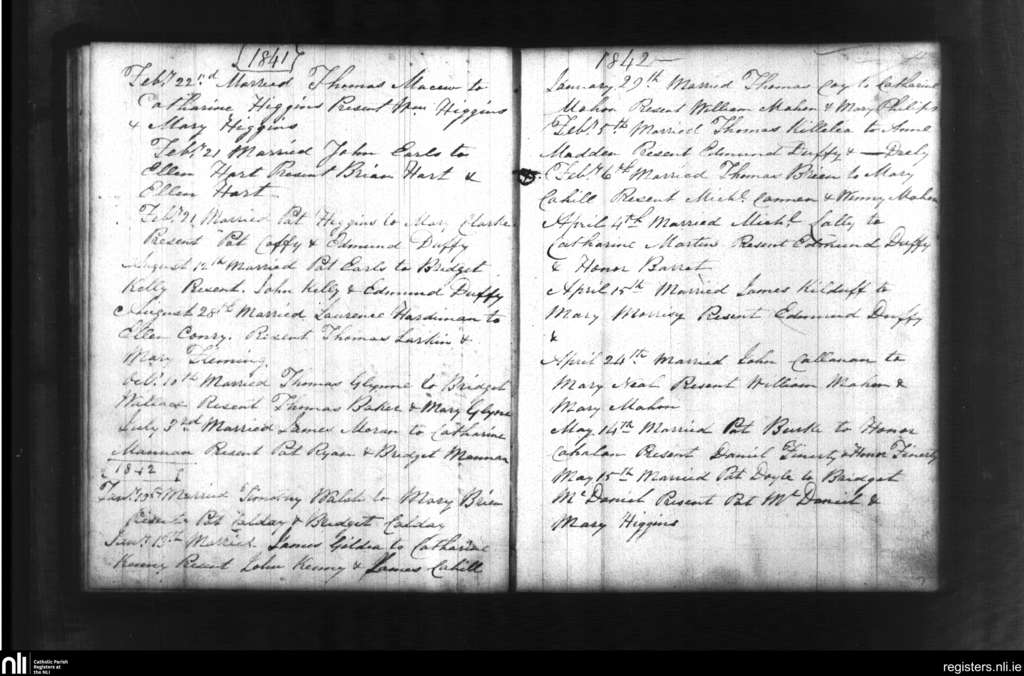 1841
Feby. 22nd Married Thomas to
Catharine Higgins Present Wm. Higgins
& Mary Higgins
Feby. 21 Married John Earls to
Ellen Hart Present Brian Hart &
Ellen Hart
Feby. 21 Married Pat Higgins to Mary Clarke
Present Pat Coffy & Edmund Duffy
August 12th Married Pat Earls to Bridget
Kelly Present. John Kelly & Edmund Duffy
August 28th Married Laurence Hardiman to
Ellen Conry. Present Thomas Larkin &
Mary Fleming
Octr. 10th Married Thomas Glynne to Bridget
Wallace Present Thomas Baker & Mary Glynne
July 3rd Married James Moran to Catharine
Mannan Present Pat Ryan & Bridget Mannan
1842
Jany. Married Timothy Walsh to Mary Brien
Present Pat Calday & Bridget Calday
Jany. 19th Married James Gildea to Catharine
Kenny Present John Kenny & James Cahill
1842
January 29th Married Thomas Coy to Catharine
Mahon Present William Mahon & Mary Philips
Feby. 5th Married Thomas Killelea to Anne
Madden Present Edmund Duffy & — Deely
Feby. 6th Married Thomas Brien to Mary
Cahill Present Michl. & Winny Mahon
April 4th Married Michl. to
Catharine Martin Present Edmund Duffy
& Honor Barret
April 15th Married James Kilduff to
Mary Present Edmund Duffy
&
April 24th Married John Callanan to
Mary Neal Present William Mahon &
Mary Mahon
May 14th Married Pat Burke to Honor
Present Daniel Finerty & Honor Finerty
May 15th Married Pat Doyle to Bridget
McDaniel Present Pat McDaniel &
Mary Higgins
nli Catholic Parish
Registers at
the NLI
registers.nli.ie